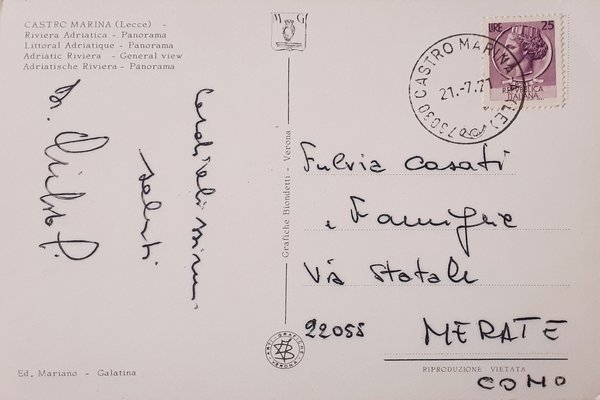 CASTRO MARINA (Lecce) -
Riviera Adriatica - Panorama
Littoral Adriatique - Panorama
Adriatic Riviera - General view
Adriatische Riviera - Panorama
M G
LIRE 25
REPUBBLICA
ITALIANA
73030 CASTRO MARINA (LE)
21.-7.71
Cordialissimi
saluti
Grafiche Biondetti - Verona
Fulvia Casati
e Famiglia
Via Statale
22055 MERATE
RIPRODUZIONE VIETATA
COMO
Ed. Mariano - Galatina